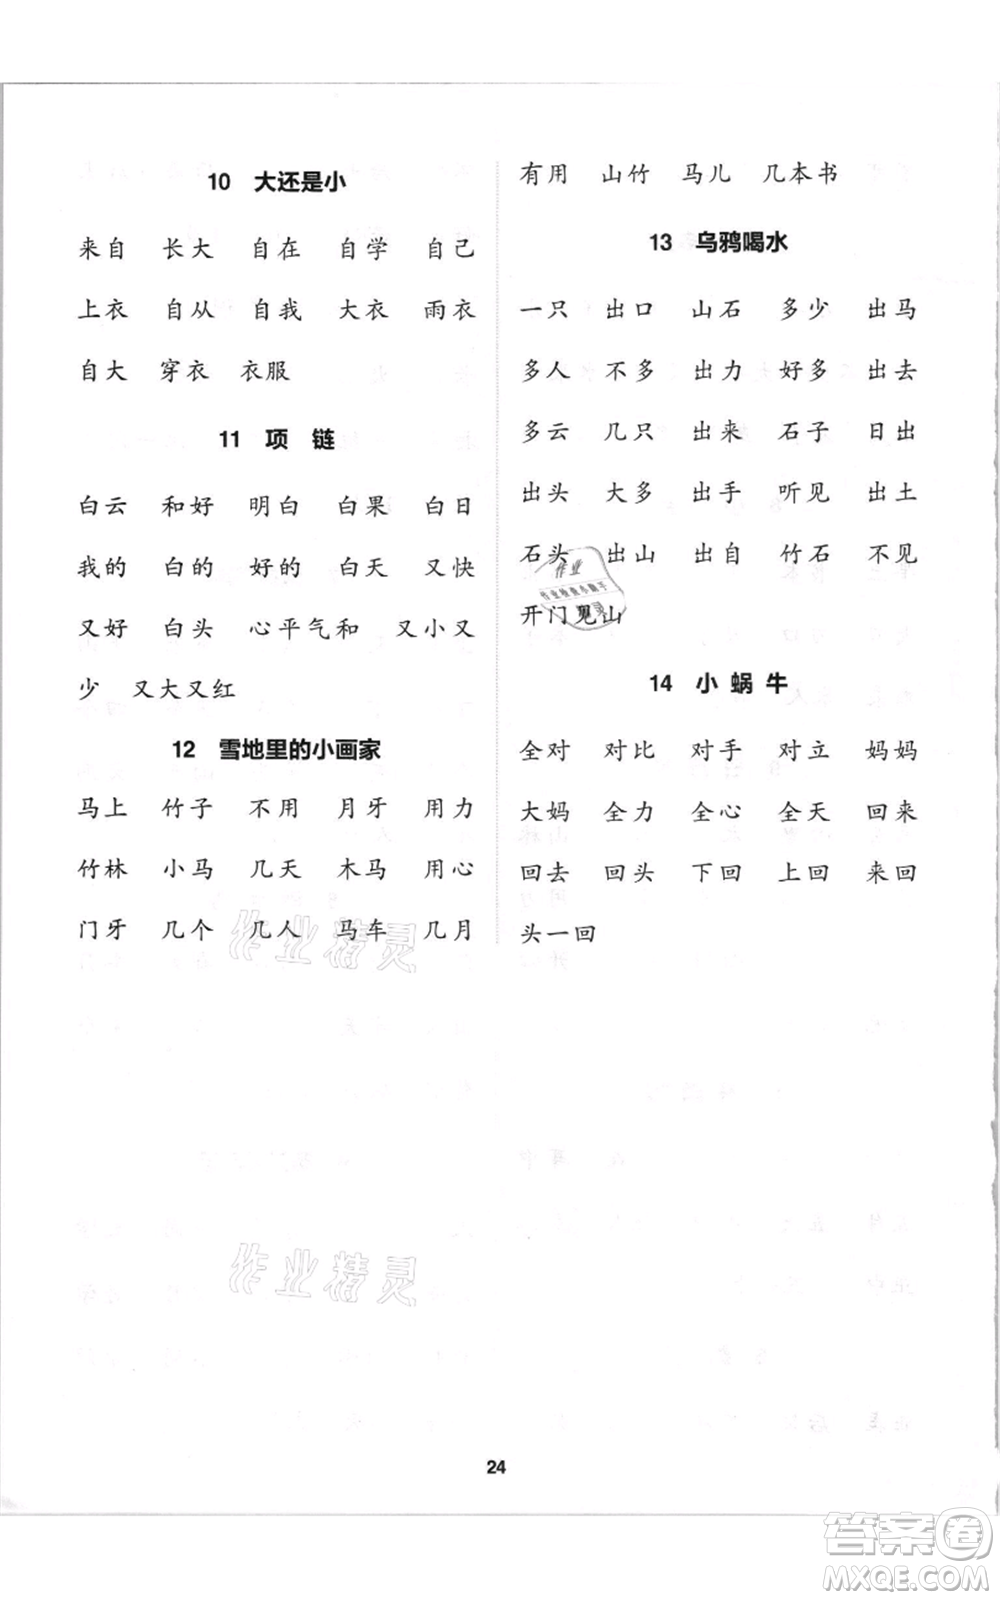 10 大还是小
来自 长大 自在 自学 自己
上衣 自从 自我 大衣 雨衣
自大 穿衣 衣服
11 项 链
白云 和好 明白 白果 白日
我的 白的 好的 白天 又快
又好 白头 心平气和 又小又
少 又大又红
12 雪地里的小画家
马上 竹子 不用 月牙 用力
竹林 小马 几天 木马 用心
门牙 几个 几人 马车 几月
有用 山竹 马儿 几本书
13 乌鸦喝水
一只 出口 山石 多少 出马
多人 不多 出力 好多 出去
多云 几只 出来 石子 日出
出头 大多 出手 听见 出土
石头 出山 出自 竹石 不见
开门见山
14 小 蜗 牛
全对 对比 对手 对立 妈妈
大妈 全力 全心 全天 回来
回去 回头 下回 上回 来回
头一回
作业精灵
作业精灵
24
答案圈
MXQE.COM